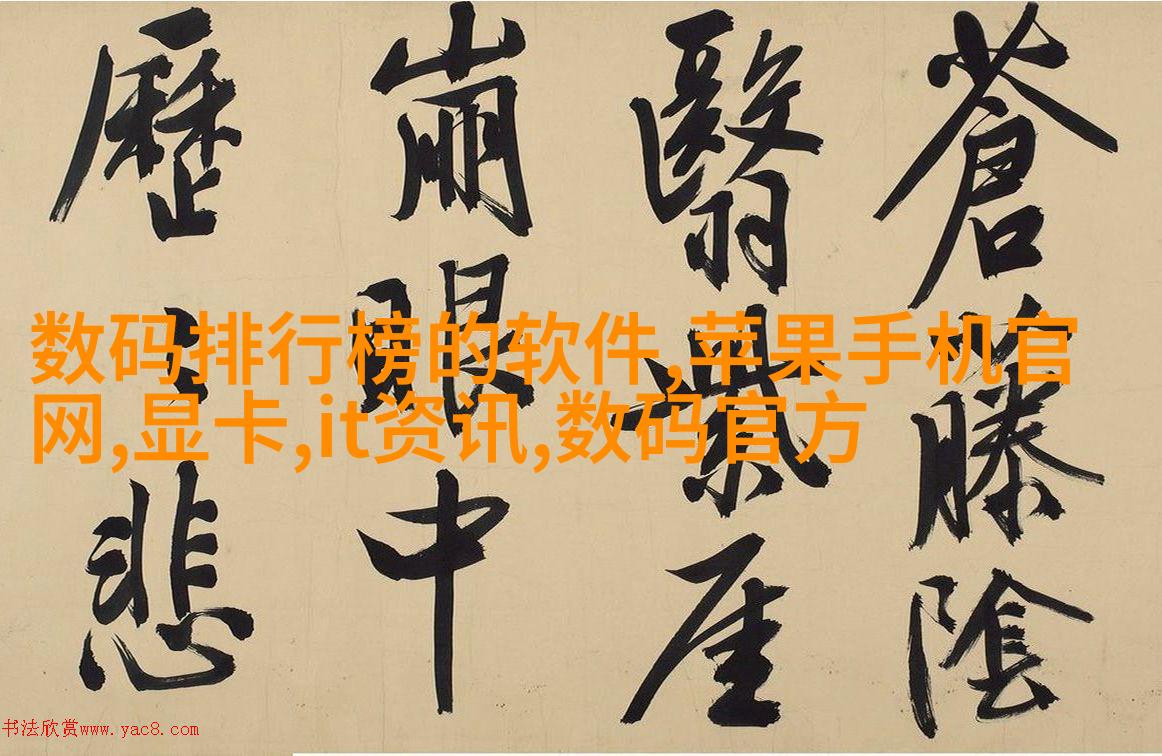 蒼藤陰
翳紫厓
崩眼中
歷悲
数码排行榜的软件,苹果手机官
网,显卡,it资讯,数码官方
书法欣赏www.yac8.com